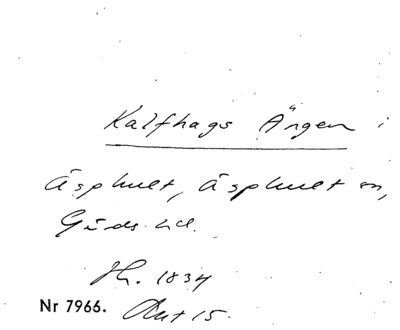 Kalfhags Ängen i
Äsphult, Äsphult sn,
Gärds hd.
Jh. 1834
Nr 7966. Akt 15.